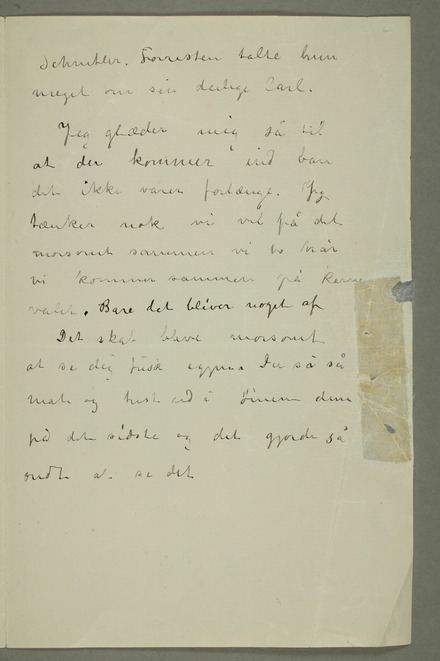 Schnitler. Forresten talte hun
meget om sin deilige Carl.
Jeg glæder mig så til
at du kommer ind bare
det ikke varer forlænge. Jeg
tænker nok vi vil få det
morsomt sammen vi to når
vi kommer sammen på karne
valet. Bare det bliver noget af
Det skal blive morsomt
at se dig frisk igjen. Du så så
mat og trist ud i øinene dine
på det sidste og det gjorde så
ondt at se det